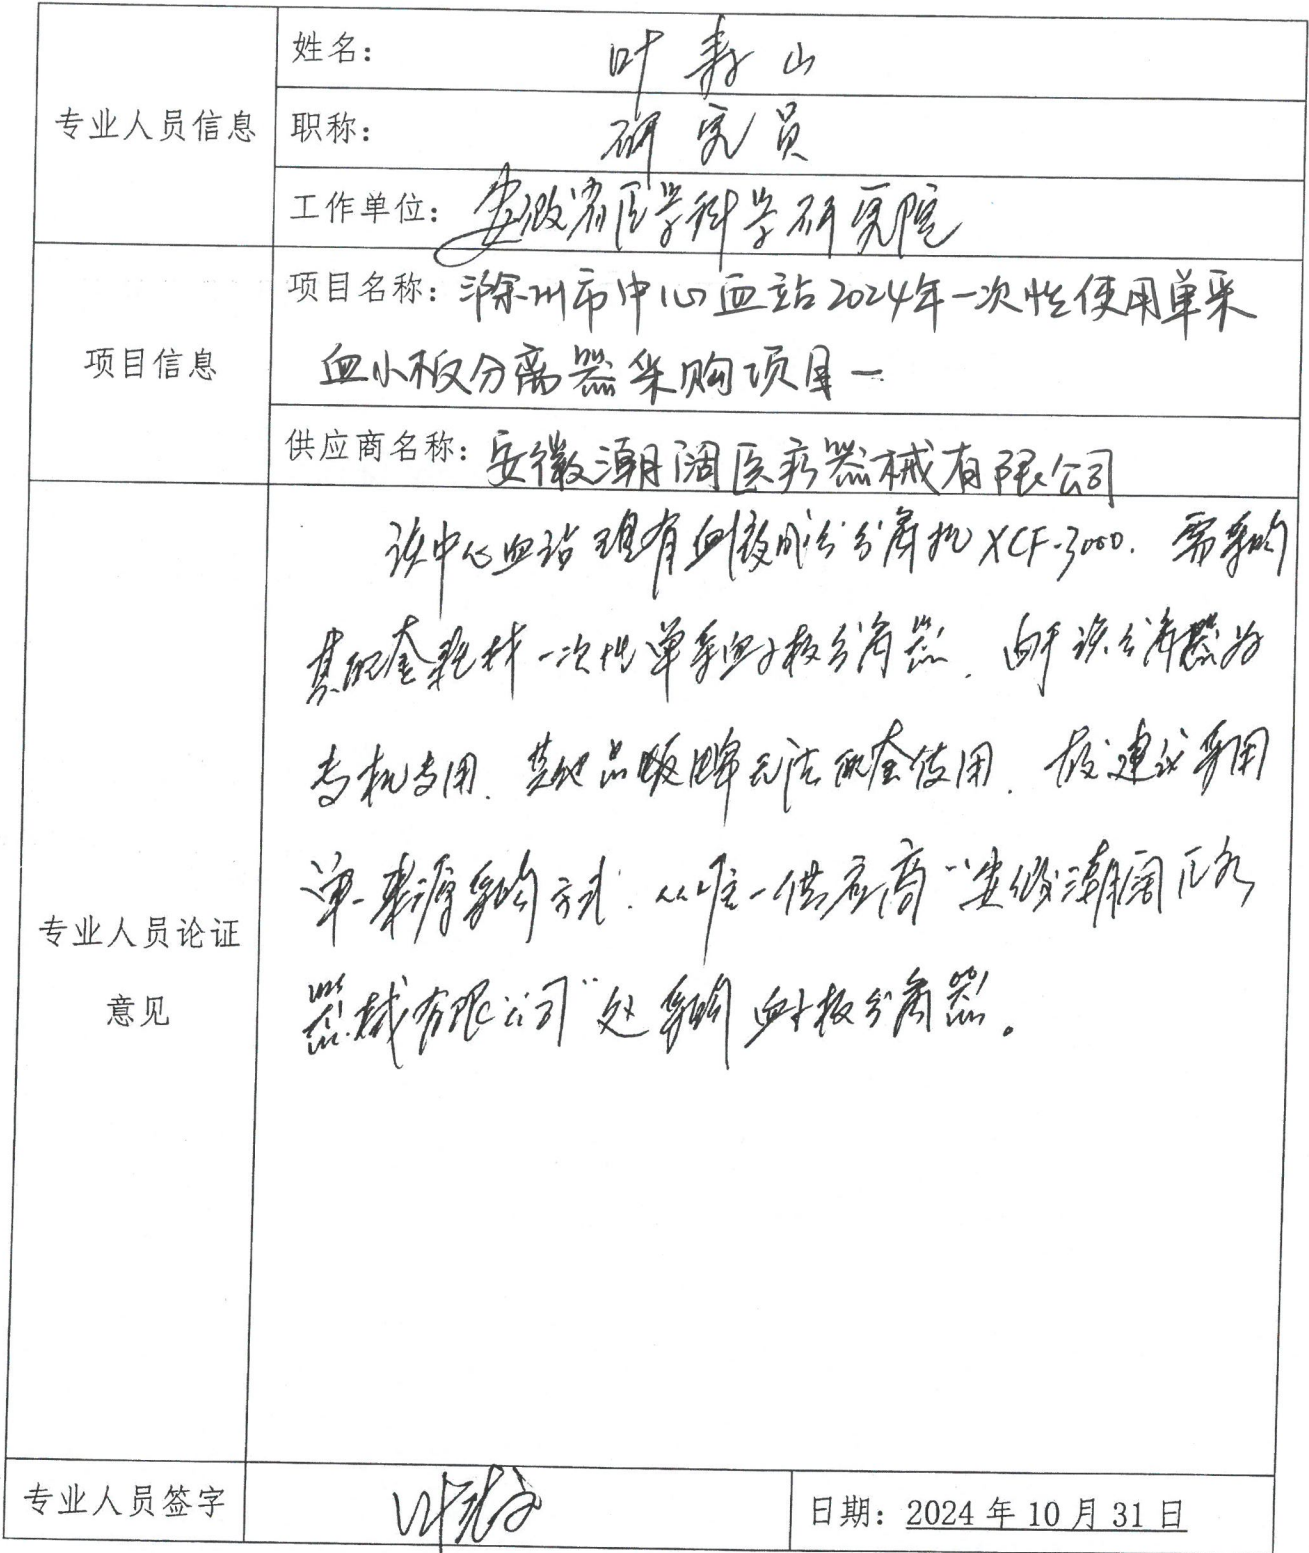 姓名： 叶寿山
专业人员信息 职称： 研究员
工作单位： 安徽省医学科学研究院
项目名称：滁州市中心血站2024年一次性使用单采
项目信息 血小板分离器采购项目一
供应商名称：安徽潮阔医疗器械有限公司
该中心血站现有血液成分分离机XCF-3000．需采购
其配套耗材一次性单采血小板分离器．由于该分离器为
专机专用．其他品牌无法配套使用．故建议采用
单一来源采购方式．从唯一供应商“安徽潮阔医疗
专业人员论证
意见
器械有限公司”处采购血小板分离器。
专业人员签字 日期：2024年10月31日